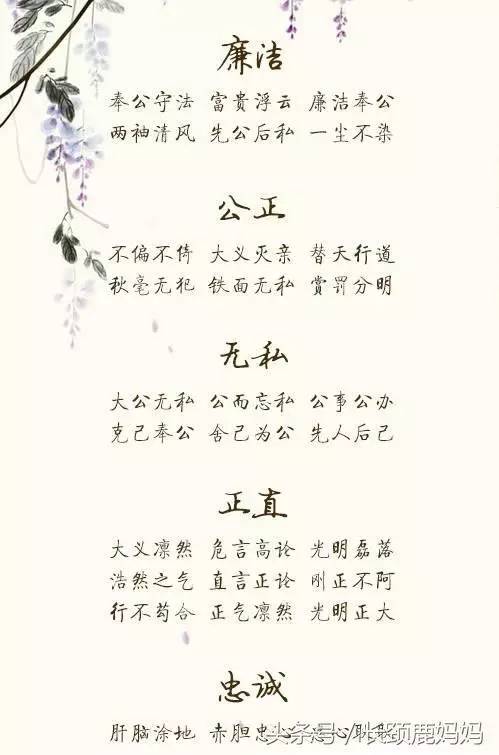 廉洁
奉公守法 富贵浮云 廉洁奉公
两袖清风 先公后私 一尘不染
公正
不偏不倚 大义灭亲 替天行道
秋毫无犯 铁面无私 赏罚分明
无私
大公无私 公而忘私 公事公办
克己奉公 舍己为公 先人后己
正直
大义凛然 危言高论 光明磊落
浩然之气 直言正论 刚正不阿
行不苟合 正气凛然 光明正大
忠诚
肝脑涂地 赤胆忠心
头条号 / 长颈鹿妈妈